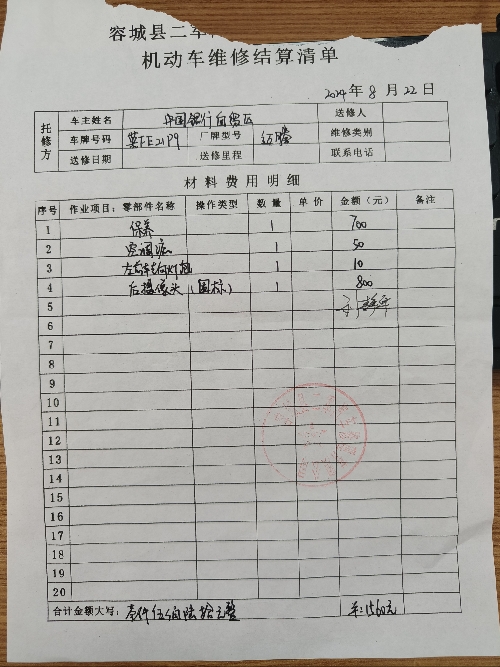 容城县二
机动车维修结算清单
2024年8月22日
托修方 车主姓名 中国银行 送修人
车牌号码 冀FE21P9 厂牌型号 迈腾 维修类别
送修日期 送修里程 联系电话
材料费用明细
序号 作业项目：零部件名称 操作类型 数量 单价 金额（元） 备注
1 保养 1 700
2 空调滤 1 50
3 左右转向灯泡 1 10
4 后摄像头（国标） 1 800
5
6
7
8
9
10
11
12
13
14
15
16
17
18
19
20
合计金额大写：壹仟伍佰陆拾元整 ¥：1560元